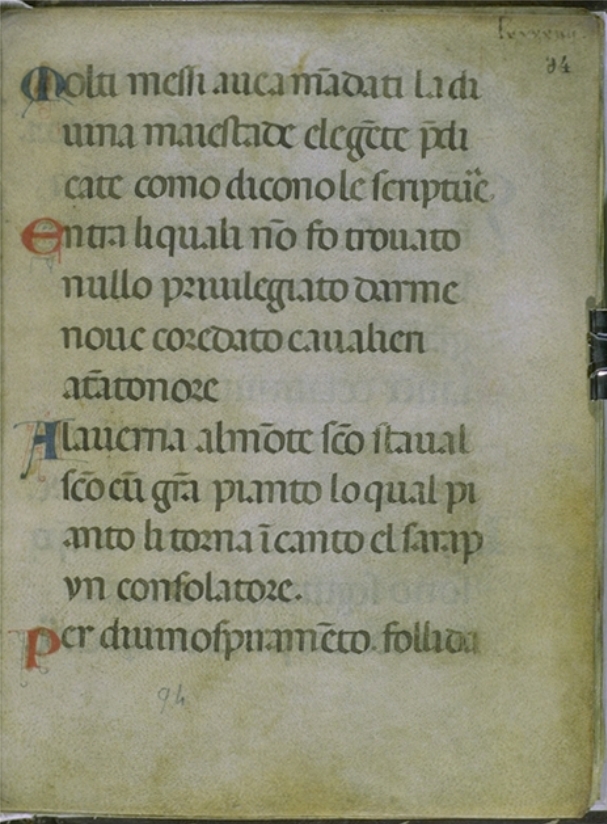 94
Molti messi auea mādati la di
uina maiestade elegēte p̄di
cate como dicono le scripture
Entra li quali nō fo trouato
nullo priuilegiato darme
noue coredato caualieri
atātonore
Alauerna almōte sc̄o staual
sc̄o cū grā pianto lo qual pi
anto li torna ī canto el sarap
yn consolatore.
Per diuino spiramēto. folli da
94